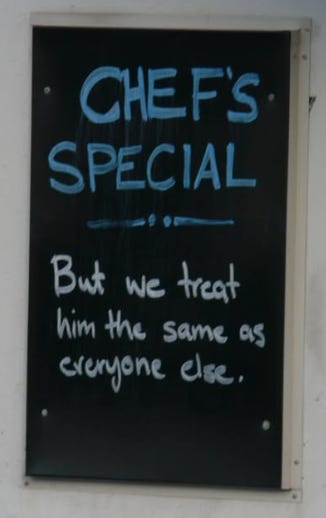 CHEF'S
SPECIAL
But we treat
him the same as
everyone else.